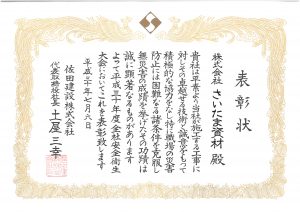 表彰状
株式会社 さいだ末資材 殿
貴社は平素より当社が施工する工事に
対しその卓越せる技術と誠意をもって
積極的な協力をなし特に職場の災害
防止には困難なる諸条件を克服し
無災害の成績を挙げたその功績は
誠に顕著なるものがあります
よって平成三十年度全社安全衛生
大会においてこれを表彰致します
平成三十年七月六日
佐田建設株式会社
代表取締役社長 土屋三幸